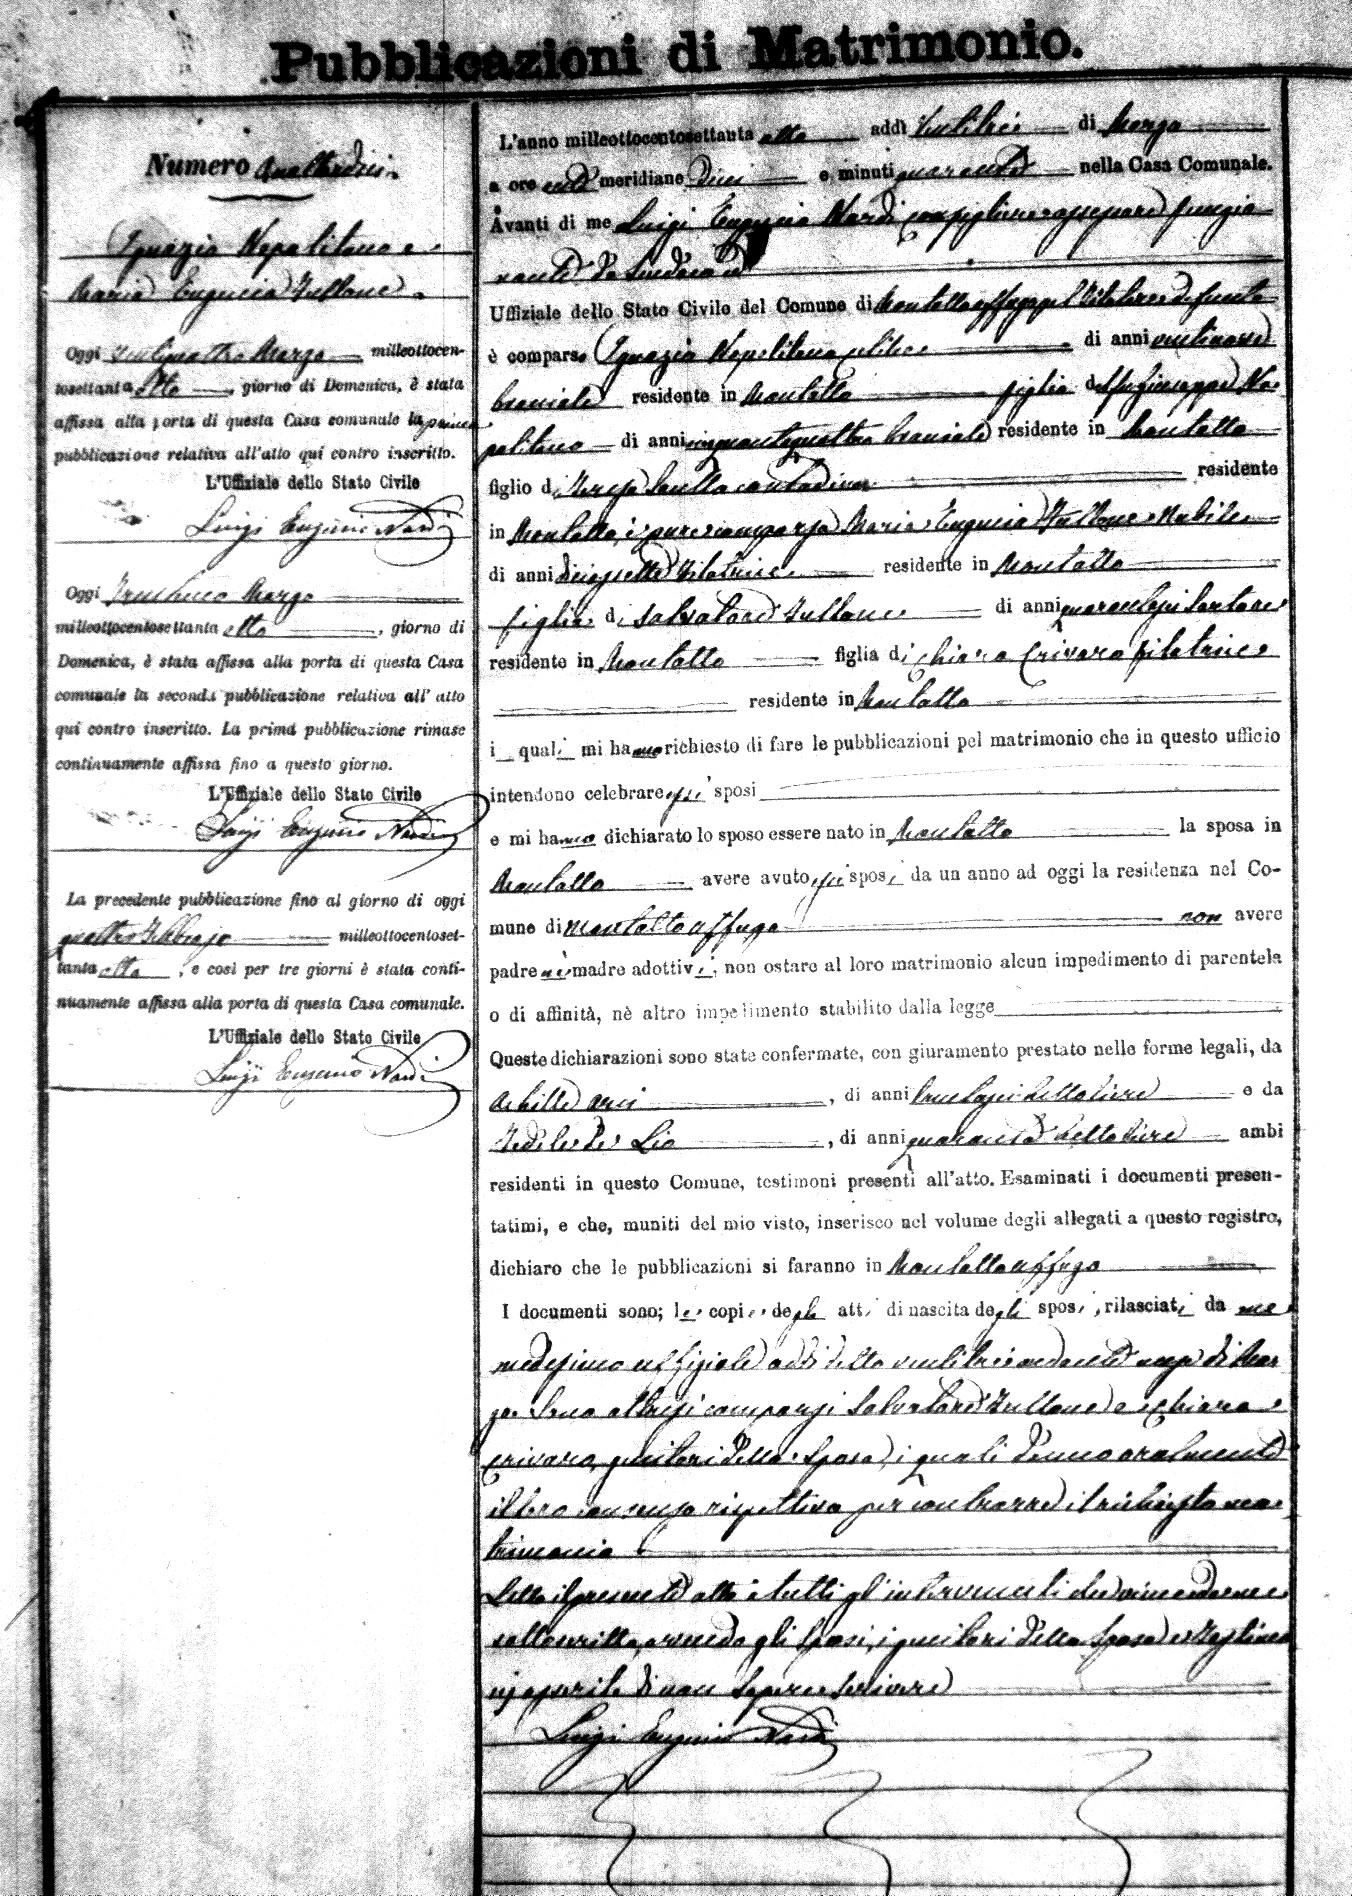 Pubblicazioni di Matrimonio.
Numero Quattordici
Ignazio Napolitano e
Maria Eugenia Fullone
Oggi ventiquattro Marzo milleottocen-
tosettanta otto, giorno di Domenica, è stata
affissa alla porta di questa Casa comunale la prima
pubblicazione relativa all'atto qui contro inscritto.
L'Uffiziale dello Stato Civile
Luigi Eugenio Nardi
Oggi Trentuno Marzo
milleottocentosettanta otto, giorno di
Domenica, è stata affissa alla porta di questa Casa
comunale la seconda pubblicazione relativa all'atto
qui contro inscritto. La prima pubblicazione rimase
continuamente affissa fino a questo giorno.
L'Uffiziale dello Stato Civile
Luigi Eugenio Nardi
La precedente pubblicazione fino al giorno di oggi
quattro Febbrajo milleottocentoset-
tanta otto, e così per tre giorni è stata conti-
nuamente affissa alla porta di questa Casa comunale.
L'Uffiziale dello Stato Civile
Luigi Eugenio Nardi
L'anno milleottocentosettanta otto addì ventitrè di Marzo
a ore anti meridiane dieci e minuti quaranta nella Casa Comunale.
Avanti di me Luigi Eugenio Nardi consigliere assessore funzio
nante da Sindaco
Uffiziale dello Stato Civile del Comune di Montalto Uffugo
è comparso Ignazio Napolitano celibe di anni ventinove
bracciale residente in Montalto figlio del fu Giuseppe Na-
politano di anni cinquantaquattro bracciale residente in Montalto
figlio di Teresa contadina residente
in Montalto, è pure comparsa Maria Eugenia Fullone Nubile
di anni diciassette filatrice residente in Montalto
figlia di Salvatore Fullone di anni quarantasei sartore
residente in Montalto figlia di Chiara Crivaro filatrice
residente in Montalto
i quali mi hanno richiesto di fare le pubblicazioni pel matrimonio che in questo ufficio
intendono celebrare essi sposi
e mi hanno dichiarato lo sposo essere nato in Montalto la sposa in
Montalto avere avuto essi sposi da un anno ad oggi la residenza nel Co-
mune di Montalto Uffugo non avere
padre nè madre adottivi, non ostare al loro matrimonio alcun impedimento di parentela
o di affinità, nè altro impedimento stabilito dalla legge
Queste dichiarazioni sono state confermate, con giuramento prestato nelle forme legali, da
Achille Arci, di anni trentasei sellatiere e da
Fedele De Lio, di anni quaranta sellatiere ambi
residenti in questo Comune, testimoni presenti all'atto. Esaminati i documenti presen-
tatimi, e che, muniti del mio visto, inserisco nel volume degli allegati a questo registro,
dichiaro che le pubblicazioni si faranno in Montalto Uffugo
I documenti sono; le copie degli atti di nascita degli sposi, rilasciati da me
medesimo uffiziale addì detto ventitrè andante mese di Mar
zo. Sono altresì comparsi Salvatore Fullone e Chiara
Crivaro, genitori della Sposa, i quali danno oralmente
il loro consenso rispettivo per contrarre il richiesto ma
trimonio
Letto il presente atto a tutti gl'intervenuti
sottoscritto, avendo gli Sposi, i genitori della Sposa e Testimoni
asserito di non sapere scrivere
Luigi Eugenio Nardi